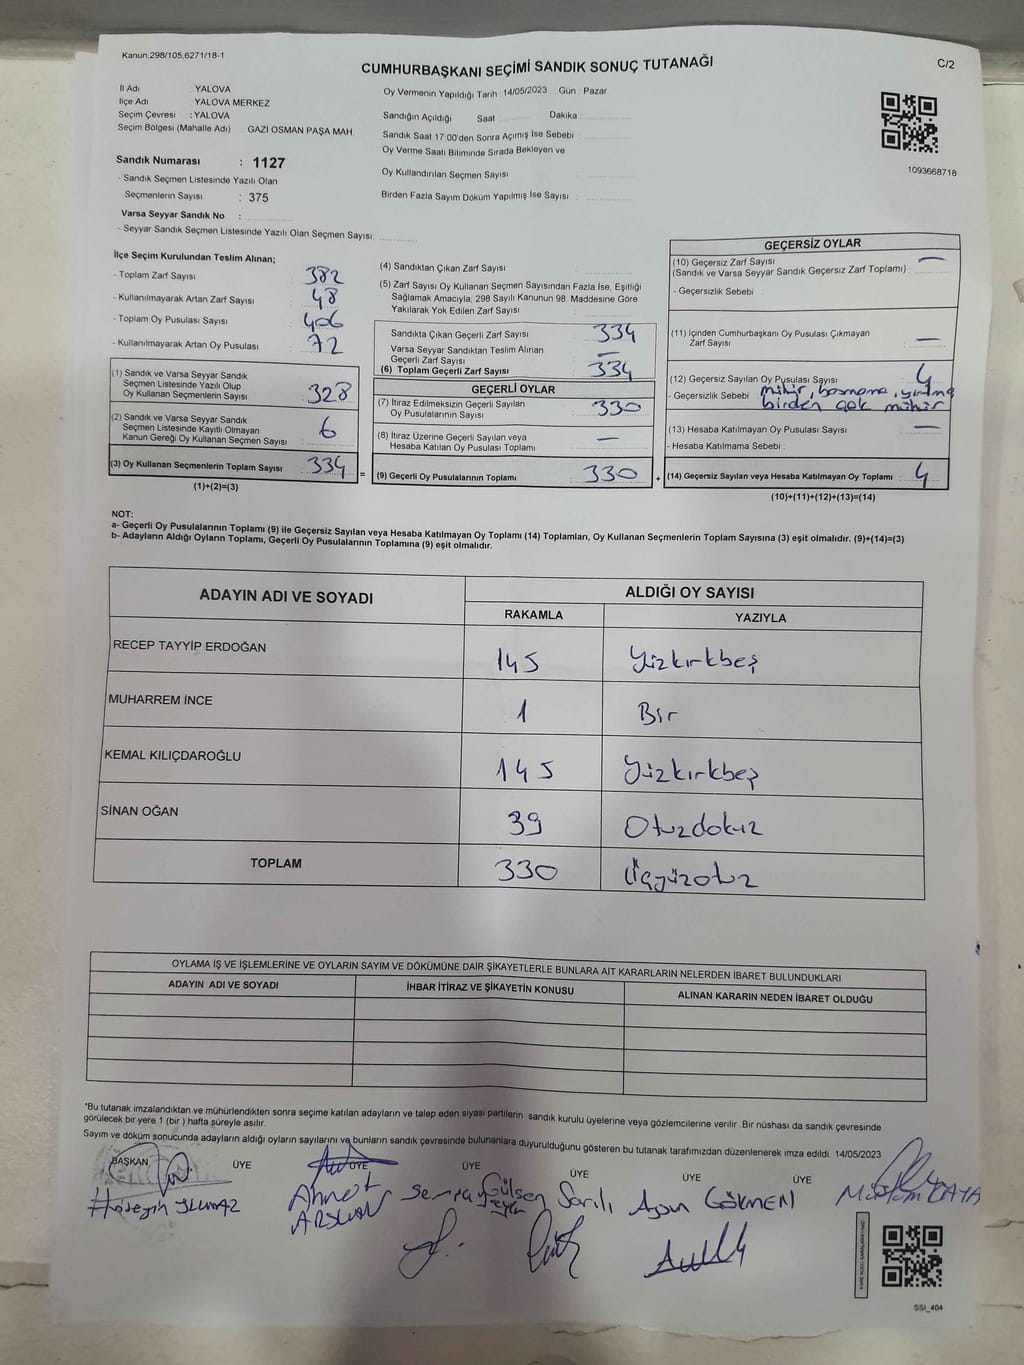 Kanun:298/105,6271/18-1
CUMHURBAŞKANI SEÇİMİ SANDIK SONUÇ TUTANAĞI
C/2
İl Adı YALOVA
İlçe Adı YALOVA MERKEZ
Seçim Çevresi : YALOVA
Seçim Bölgesi (Mahalle Adı) GAZİ OSMAN PAŞA MAH.
Sandık Numarası : 1127
- Sandık Seçmen Listesinde Yazılı Olan
Seçmenlerin Sayısı : 375
Varsa Seyyar Sandık No :
- Seyyar Sandık Seçmen Listesinde Yazılı Olan Seçmen Sayısı:
Oy Vermenin Yapıldığı Tarih : 14/05/2023 Gün : Pazar
Sandığın Açıldığı Saat Dakika
Sandık Saat 17:00'den Sonra Açılmış İse Sebebi :
Oy Verme Saati Bitiminde Sırada Bekleyen ve
Oy Kullandırılan Seçmen Sayısı :
Birden Fazla Sayım Döküm Yapılmış İse Sayısı :
1093668718
İlçe Seçim Kurulundan Teslim Alınan;
- Toplam Zarf Sayısı : 382
- Kullanılmayarak Artan Zarf Sayısı : 48
- Toplam Oy Pusulası Sayısı : 406
- Kullanılmayarak Artan Oy Pusulası : 72
(1) Sandık ve Varsa Seyyar Sandık
Seçmen Listesinde Yazılı Olup
Oy Kullanan Seçmenlerin Sayısı : 328
(2) Sandık ve Varsa Seyyar Sandık
Seçmen Listesinde Kayıtlı Olmayan
Kanun Gereği Oy Kullanan Seçmen Sayısı : 6
(3) Oy Kullanan Seçmenlerin Toplam Sayısı : 334 =
(1)+(2)=(3)
(4) Sandıktan Çıkan Zarf Sayısı
(5) Zarf Sayısı Oy Kullanan Seçmen Sayısından Fazla İse, Eşitliği
Sağlamak Amacıyla; 298 Sayılı Kanunun 98. Maddesine Göre
Yakılarak Yok Edilen Zarf Sayısı
Sandıkta Çıkan Geçerli Zarf Sayısı 334
Varsa Seyyar Sandıktan Teslim Alınan
Geçerli Zarf Sayısı : —
(6) Toplam Geçerli Zarf Sayısı 334
GEÇERLİ OYLAR
(7) İtiraz Edilmeksizin Geçerli Sayılan
Oy Pusulalarının Sayısı : 330
(8) İtiraz Üzerine Geçerli Sayılan veya
Hesaba Katılan Oy Pusulası Toplamı : —
(9) Geçerli Oy Pusulalarının Toplamı : 330 +
GEÇERSİZ OYLAR
(10) Geçersiz Zarf Sayısı —
(Sandık ve Varsa Seyyar Sandık Geçersiz Zarf Toplamı) :
- Geçersizlik Sebebi :
(11) İçinden Cumhurbaşkanı Oy Pusulası Çıkmayan
Zarf Sayısı : —
(12) Geçersiz Sayılan Oy Pusulası Sayısı : 4
- Geçersizlik Sebebi mühür, basmama, yırtma
birden çok mühür
(13) Hesaba Katılmayan Oy Pusulası Sayısı : —
- Hesaba Katılmama Sebebi :
(14) Geçersiz Sayılan veya Hesaba Katılmayan Oy Toplamı : 4
(10)+(11)+(12)+(13)=(14)
NOT:
a- Geçerli Oy Pusulalarının Toplamı (9) ile Geçersiz Sayılan veya Hesaba Katılmayan Oy Toplamı (14) Toplamları, Oy Kullanan Seçmenlerin Toplam Sayısına (3) eşit olmalıdır. (9)+(14)=(3)
b- Adayların Aldığı Oyların Toplamı, Geçerli Oy Pusulalarının Toplamına (9) eşit olmalıdır.
ADAYIN ADI VE SOYADI ALDIĞI OY SAYISI
RAKAMLA YAZIYLA
RECEP TAYYİP ERDOĞAN 145 Yüzkırkbeş
MUHARREM İNCE 1 Bir
KEMAL KILIÇDAROĞLU 145 Yüzkırkbeş
SİNAN OĞAN 39 Otuzdokuz
TOPLAM 330 Üçyüzotuz
OYLAMA İŞ VE İŞLEMLERİNE VE OYLARIN SAYIM VE DÖKÜMÜNE DAİR ŞİKAYETLERLE BUNLARA AİT KARARLARIN NELERDEN İBARET BULUNDUKLARI
ADAYIN ADI VE SOYADI İHBAR İTİRAZ VE ŞİKAYETİN KONUSU ALINAN KARARIN NEDEN İBARET OLDUĞU
*Bu tutanak imzalandıktan ve mühürlendikten sonra seçime katılan adayların ve talep eden siyasi partilerin sandık kurulu üyelerine veya gözlemcilerine verilir. Bir nüshası da sandık çevresinde
görülecek bir yere 1 (bir) hafta süreyle asılır.
Sayım ve döküm sonucunda adayların aldığı oyların sayılarını ve bunların sandık çevresinde bulunanlara duyurulduğunu gösteren bu tutanak tarafımızdan düzenlenerek imza edildi. 14/05/2023
BAŞKAN ÜYE ÜYE ÜYE ÜYE ÜYE ÜYE
Hüseyin YILMAZ Ahmet ARSLAN Gülsen Sarılı GÖKMEN KAYA
SSI_404